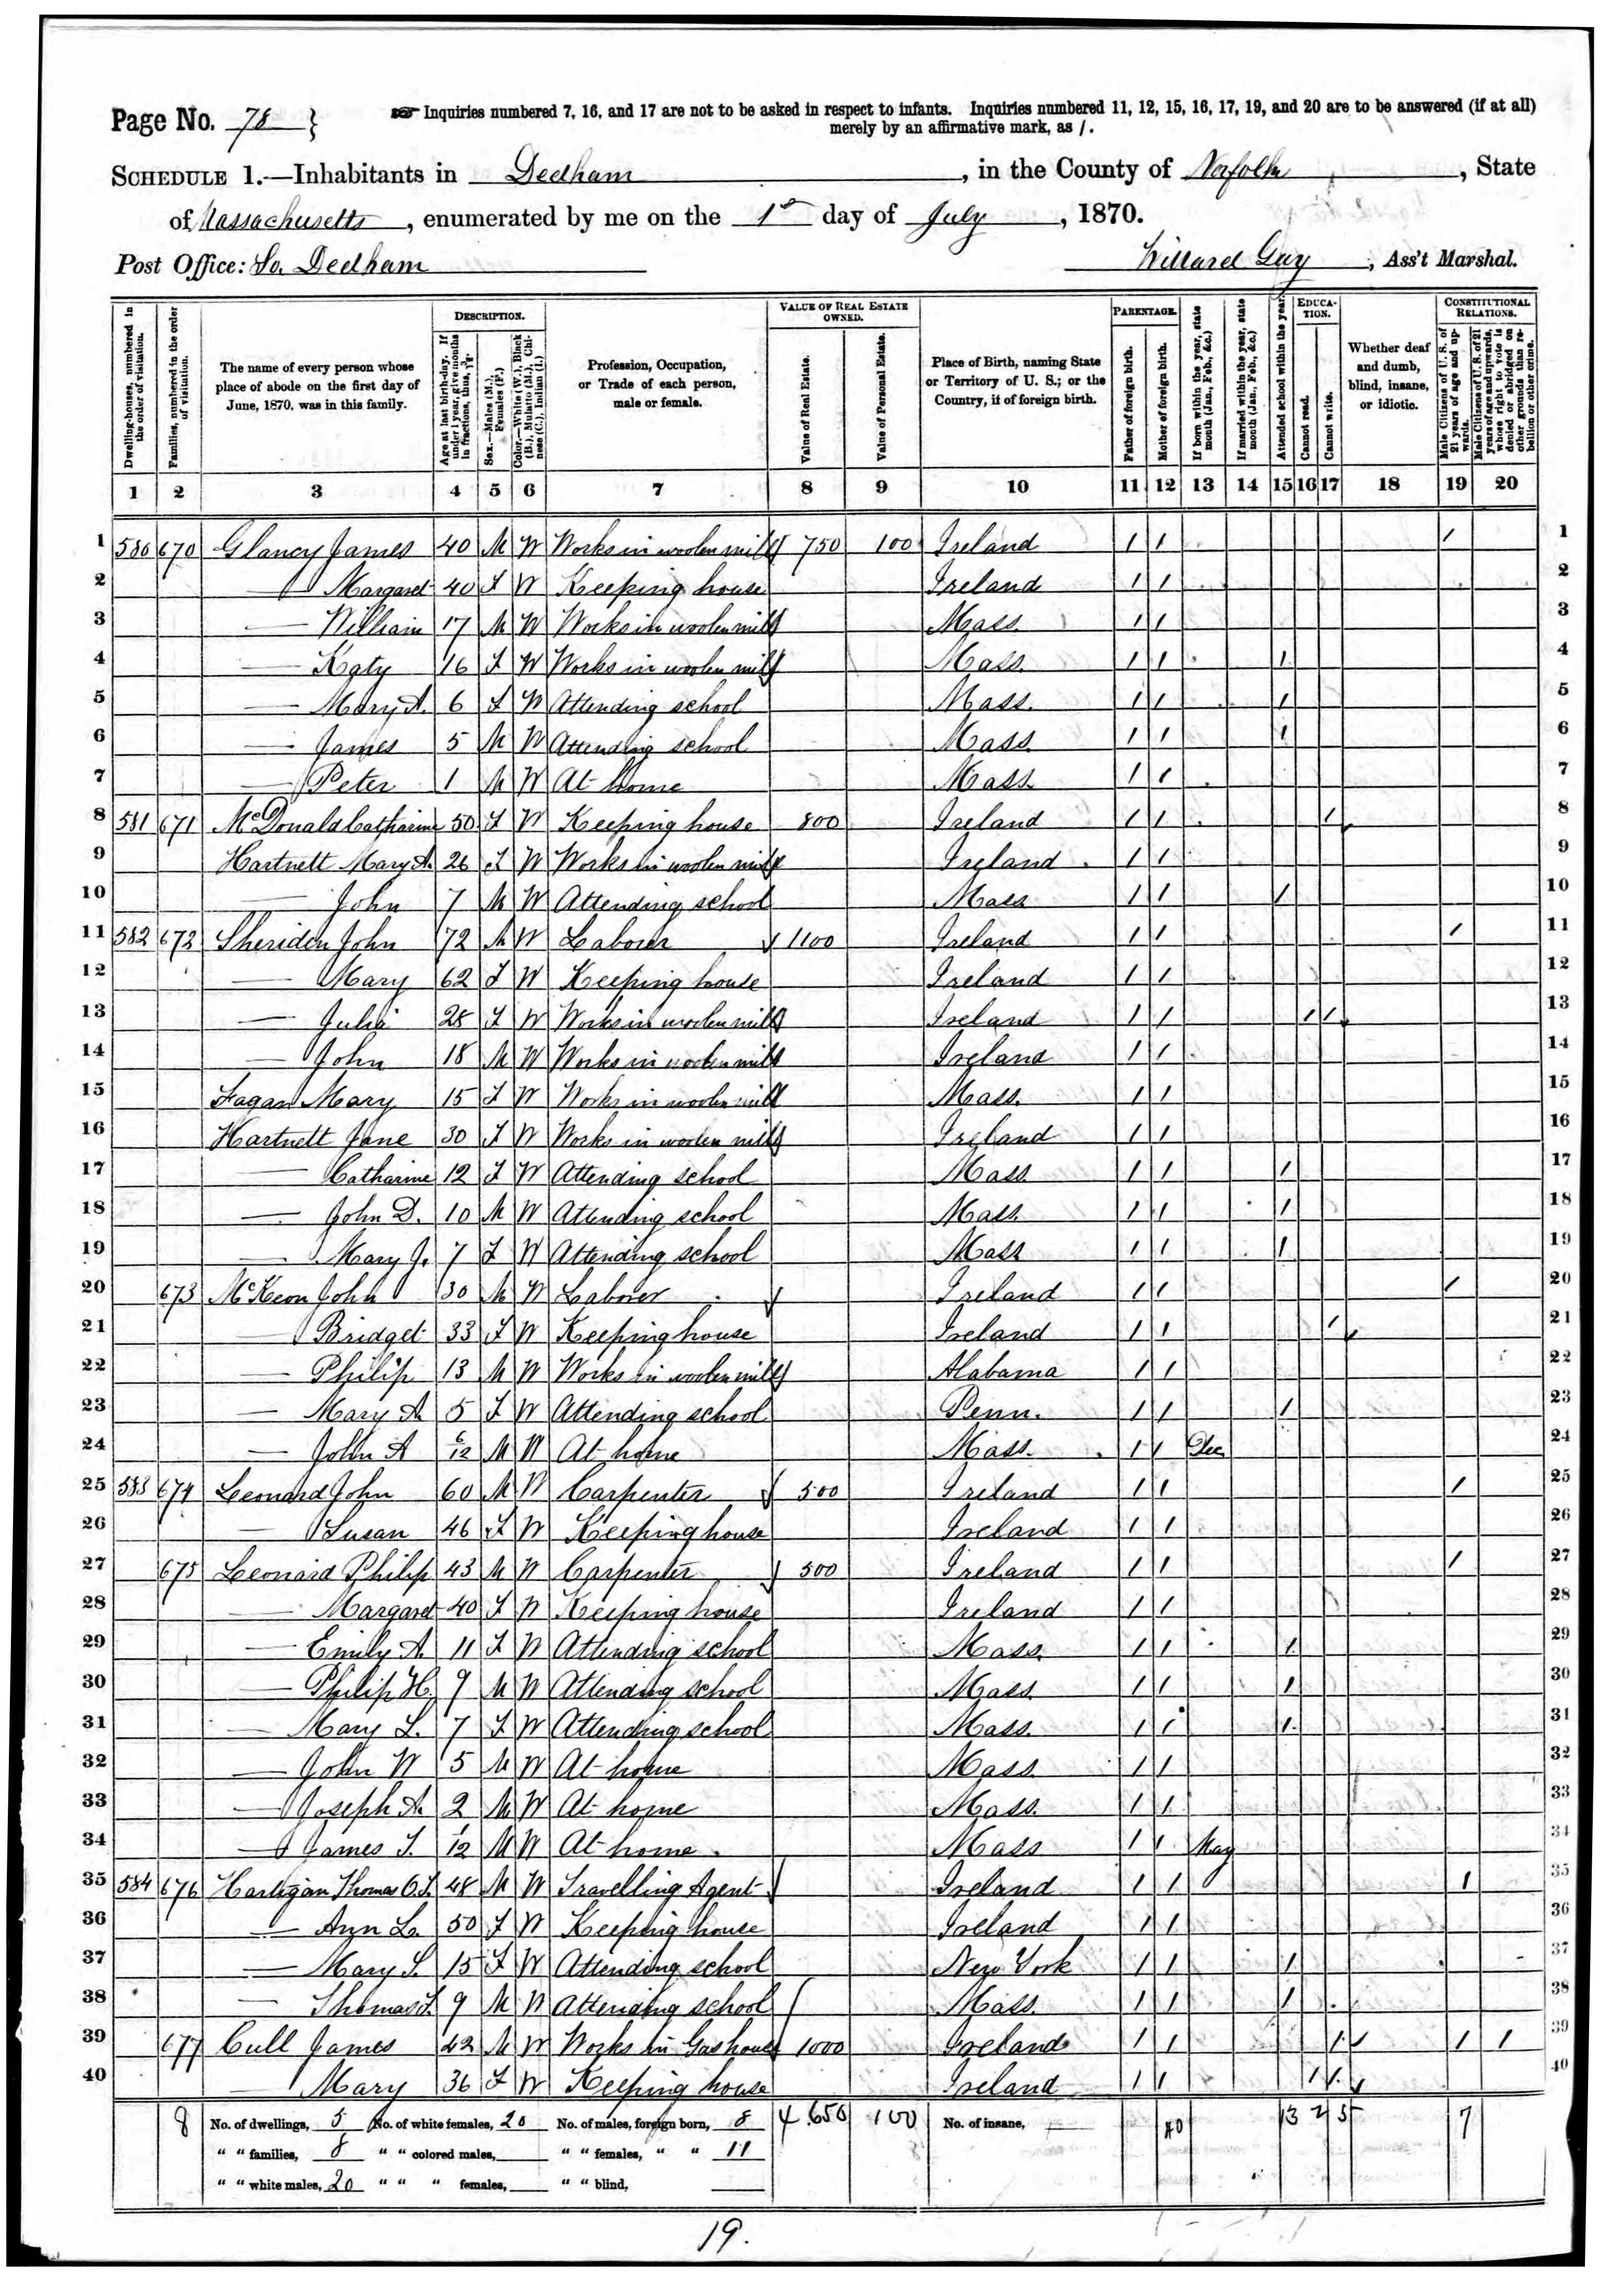 Page No. 78 } Inquiries numbered 7, 16, and 17 are not to be asked in respect to infants. Inquiries numbered 11, 12, 15, 16, 17, 19, and 20 are to be answered (if at all)
merely by an affirmative mark, as /.
SCHEDULE 1.—Inhabitants in Dedham, in the County of Norfolk, State
of Massachusetts, enumerated by me on the 1st day of July, 1870.
Post Office: So. Dedham Willard Gay, Ass't Marshal.
Dwelling-houses, numbered in the order of visitation.
Families, numbered in the order of visitation.
The name of every person whose place of abode on the first day of June, 1870, was in this family.
DESCRIPTION.
Age at last birth-day. If under 1 year, give months in fractions, thus, 3/12.
Sex.—Males (M.), Females (F.)
Color.—White (W.), Black (B.), Mulatto (M.), Chinese (C.), Indian (I.)
Profession, Occupation, or Trade of each person, male or female.
VALUE OF REAL ESTATE OWNED.
Value of Real Estate.
Value of Personal Estate.
Place of Birth, naming State or Territory of U. S.; or the Country, if of foreign birth.
PARENTAGE.
Father of foreign birth.
Mother of foreign birth.
If born within the year, state month (Jan. Feb., &c.)
If married within the year, state month (Jan. Feb., &c.)
Attended school within the year.
EDUCATION.
Cannot read.
Cannot write.
Whether deaf and dumb, blind, insane, or idiotic.
CONSTITUTIONAL RELATIONS.
Male Citizens of U. S. of 21 years of age and upwards.
Male Citizens of U. S. of 21 years of age and upwards, whose right to vote is denied or abridged on other grounds than rebellion or other crime.
1 2 3 4 5 6 7 8 9 10 11 12 13 14 15 16 17 18 19 20
1 580 670 Glancy James 40 M W Works in woolen mill 750 100 Ireland / / / 1
2 — Margaret 40 F W Keeping house Ireland / / 2
3 — William 17 M W Works in woolen mill Mass. / / 3
4 — Katy 16 F W Works in woolen mill Mass. / / / 4
5 — Mary A. 6 F W Attending school Mass. / / / 5
6 — James 5 M W Attending school Mass. / / / 6
7 — Peter 1 M W At home Mass. / / 7
8 581 671 McDonald Catharine 50 F W Keeping house 800 Ireland / / / 8
9 Hartnett Mary A. 26 F W Works in woolen mill Ireland / / 9
10 — John 7 M W Attending school Mass / / / 10
11 582 672 Sheriden John 72 M W Laborer 1100 Ireland / / / 11
12 — Mary 62 F W Keeping house Ireland / / 12
13 — Julia 28 F W Works in woolen mill Ireland / / / / 13
14 — John 18 M W Works in woolen mill Ireland / / 14
15 Fagan Mary 15 F W Works in woolen mill Mass. / / 15
16 Hartnett Jane 30 F W Works in woolen mill Ireland / / 16
17 — Catharine 12 F W Attending school Mass. / / / 17
18 — John D. 10 M W Attending school Mass. / / / 18
19 — Mary J. 7 F W Attending school Mass / / / 19
20 673 McKeon John 30 M W Laborer Ireland / / / 20
21 — Bridget 33 F W Keeping house Ireland / / / 21
22 — Philip 13 M W Works in woolen mill Alabama / / 22
23 — Mary A 5 F W Attending school Penn. / / / 23
24 — John A 6/12 M W At home Mass. / / Dec 24
25 583 674 Leonard John 60 M W Carpenter 500 Ireland / / / 25
26 — Susan 46 F W Keeping house Ireland / / 26
27 675 Leonard Philip 43 M W Carpenter 500 Ireland / / / 27
28 — Margaret 40 F W Keeping house Ireland / / 28
29 — Emily A. 11 F W Attending school Mass. / / / 29
30 — Philip H. 9 M W Attending school Mass. / / / 30
31 — Mary L. 7 F W Attending school Mass. / / / 31
32 — John W 5 M W At home Mass. / / 32
33 — Joseph A. 2 M W At home Mass. / / 33
34 — James F. 1/12 M W At home Mass / / May 34
35 584 676 Hartigan Thomas O.F. 48 M W Travelling Agent Ireland / / / 35
36 — Ann L. 50 F W Keeping house Ireland / / 36
37 — Mary S. 15 F W Attending school New York / / / 37
38 — Thomas F. 9 M W Attending school Mass. / / / 38
39 677 Cull James 42 M W Works in Gas house 1000 Ireland / / / / / 39
40 — Mary 36 F W Keeping house Ireland / / / / 40
8 No. of dwellings, 5 No. of white females, 20 No. of males, foreign born, 8 4,650 100 No. of insane, 40 13 2 5 7
" " families, 8 " " colored males, " " females, " " 11
" " white males, 20 " " " females, " " blind,
19.